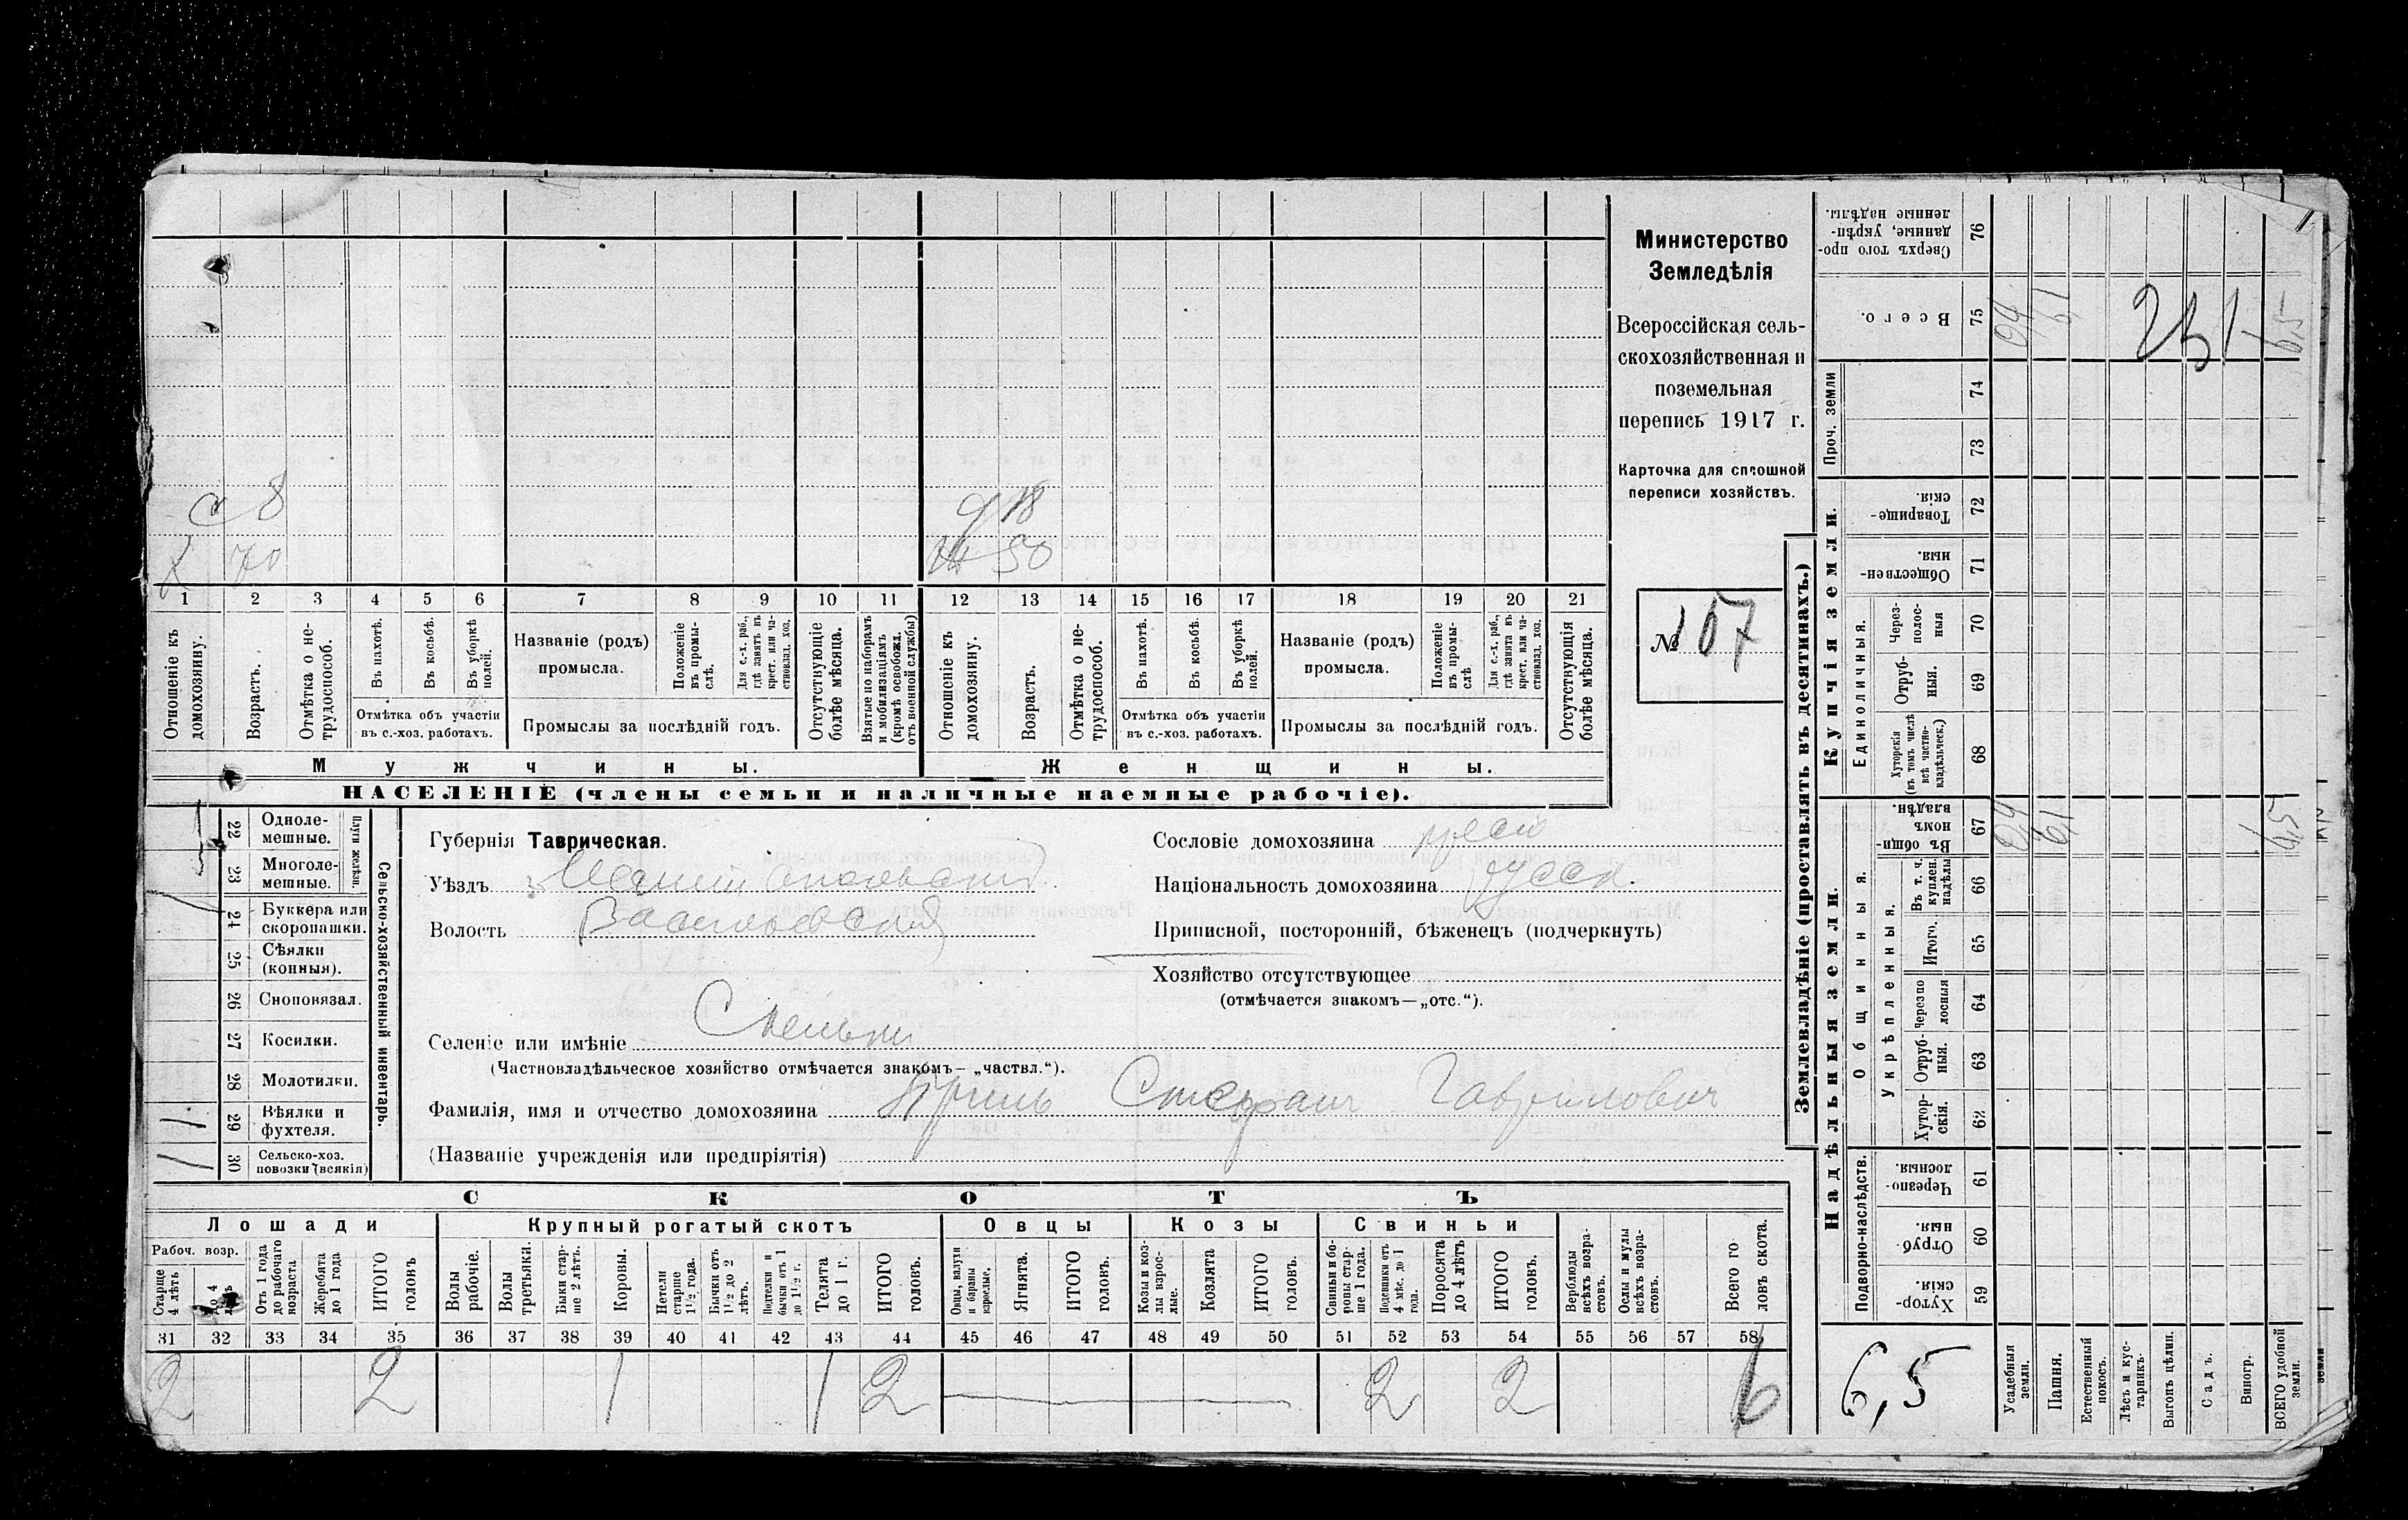 Министерство
Земледѣлія
Всероссійская сель-
скохозяйственная и
поземельная
перепись 1917 г.
Карточка для сплошной
переписи хозяйствъ.
№ 157
с 8
х 70
18
ж 50
1 2 3 4 5 6 7 8 9 10 11 12 13 14 15 16 17 18 19 20 21
Отношеніе къ домохозяину.
Возрастъ.
Отмѣтка о не-трудоспособ.
Въ пахотѣ.
Въ косьбѣ.
Въ уборкѣ полей.
Отмѣтка объ участіи
въ с.-хоз. работахъ.
Названіе (родъ)
промысла.
Положеніе въ промы-слѣ.
Для с.-х. раб., гдѣ занятъ въ крест. или ча-стновлад. хоз.
Промыслы за послѣдній годъ.
Отсутствующіе болѣе мѣсяца.
Взятые по наборамъ и мобилизаціямъ (кромѣ освобожд. отъ военной службы)
Отношеніе къ домохозяину.
Возрастъ.
Отмѣтка о не-трудоспособ.
Въ пахотѣ.
Въ косьбѣ.
Въ уборкѣ полей.
Отмѣтка объ участіи
въ с.-хоз. работахъ.
Названіе (родъ)
промысла.
Положеніе въ промы-слѣ
Для с.-х. раб., гдѣ занята въ крест. или ча-стновлад. хоз.
Промыслы за послѣдній годъ.
Отсутствующія болѣе мѣсяца.
Мужчины.
Женщины.
НАСЕЛЕНІЕ (члены семьи и наличные наемные рабочіе).
Сельско-хозяйственный инвентарь.
Плуги желѣзн.
22 Одноле-мешные.
23 Многоле-мешные.
24 Буккера или скоропашки.
25 Сѣялки (конныя).
26 Сноповязал.
27 Косилки.
28 Молотилки.
1 29 Вѣялки и фухтеля.
1 30 Сельско-хоз. повозки (всякія)
Губернія Таврическая.
Уѣздъ Мелитопольскій
Волость Васильевская
Селеніе или имѣніе
(Частновладѣльческое хозяйство отмѣчается знакомъ— „частвл.“).
Фамилія, имя и отчество домохозяина Стефанъ Гавриловичъ
(Названіе учрежденія или предпріятія)
Сословіе домохозяина
Національность домохозяина русск.
Приписной, посторонній, бѣженецъ (подчеркнуть)
Хозяйство отсутствующее
(отмѣчается знакомъ—„отс.“).
СКОТЪ
Лошади
Крупный рогатый скотъ
Овцы
Козы
Свиньи
Рабоч. возр.
Старше 4 лѣтъ
до 4 лѣтъ
Отъ 1 года до рабочаго возраста
Жеребята до 1 года
ИТОГО головъ
Волы рабочіе.
Волы третьяки.
Быки стар-ше 2 лѣтъ.
Коровы.
Нетели старше 1½ года.
Бычки отъ 1½ до 2 лѣтъ.
Подтелки и бычки отъ 1 до 1½ г.
Телята до 1 г.
ИТОГО головъ.
Овцы, валухи и бараны взрослые.
Ягнята.
ИТОГО головъ.
Козы и коз-лы взрос-лые.
Козлята
ИТОГО головъ.
Свиньи и бо-ровы стар-ше 1 года.
Подсвинки отъ 4 мѣс. до 1 года.
Поросята до 4 лѣтъ
ИТОГО головъ.
Верблюды всѣхъ возра-стовъ.
Ослы и мулы всѣхъ возра-стовъ.
Всего го-ловъ скота.
31 32 33 34 35 36 37 38 39 40 41 42 43 44 45 46 47 48 49 50 51 52 53 54 55 56 57 58
2 2 1 1 2 2 2 6
Землевладѣніе (проставлять въ десятинахъ.)
Надѣльныя земли.
Купчія земли.
Проч. земли
Подворно-наслѣдств.
Общинныя.
Укрѣпленныя.
Единоличныя.
Сверхъ того про-данные, укрѣп-ленные надѣлы. 76
Всего. 75
74
73
Товарище-скія. 72
Обществен-ныя. 71
Через-полос-ныя 70
Отруб-ныя. 69
Хуторскія (въ томъ числѣ всѣ частно-владѣльческ.) 68
Въ общи-номъ владѣн. 67
Въ т. ч. куплен. надѣлы 66
Итого. 65
Черезпо-лосныя 64
Отруб-ныя. 63
Хутор-скія. 62
Черезпо-лосныя. 61
Отруб-ныя. 60
Хутор-скія. 59
6,5
Усадебныя земли.
Пашня.
Естественный покосъ.
Лѣсъ и кус-тарникъ.
Выгонъ цѣлин.
Садъ.
Виногр.
ВСЕГО удобной земли.